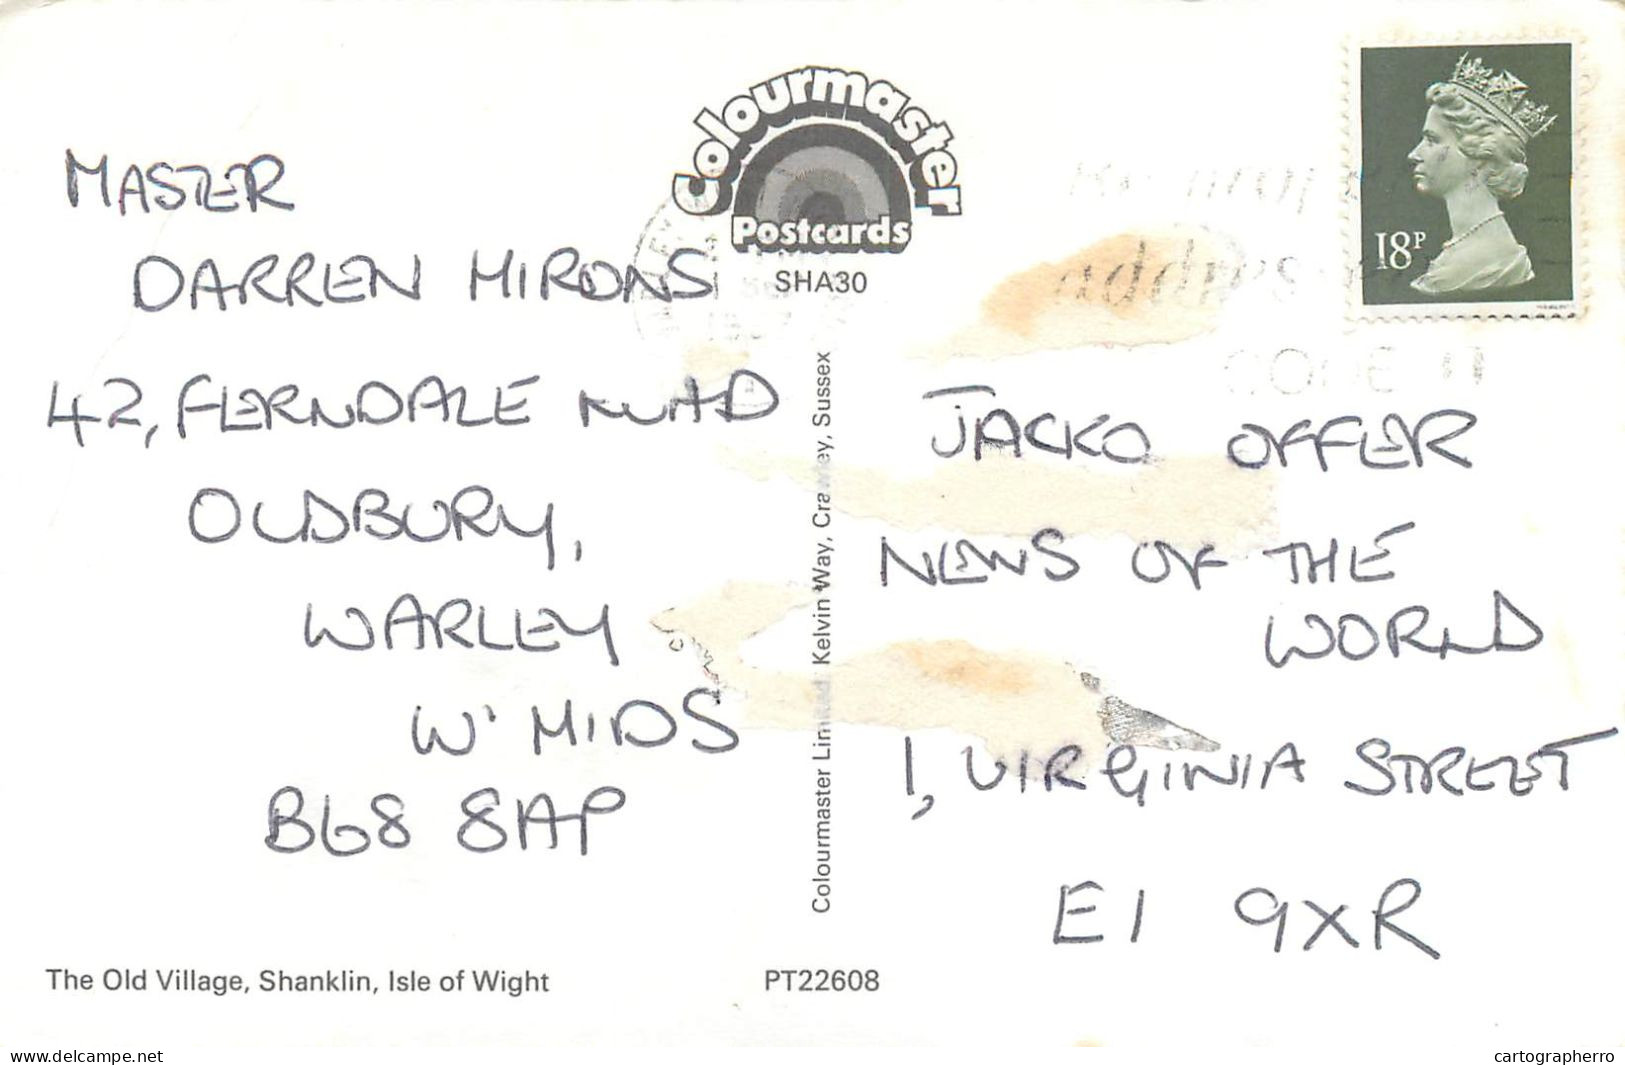 MASTER
DARREN MIRONS
42, FERNDALE ROAD
OLDBURY,
WARLEY
W' MIDS
B68 8AP
Colourmaster
Postcards
SHA30
Colourmaster Limited Kelvin Way, Crawley, Sussex
address
CODE IT
18P
JACKO OFFER
NEWS OF THE
WORLD
1, VIRGINIA STREET
E1 9XR
The Old Village, Shanklin, Isle of Wight
PT22608
www.delcampe.net
cartographerro